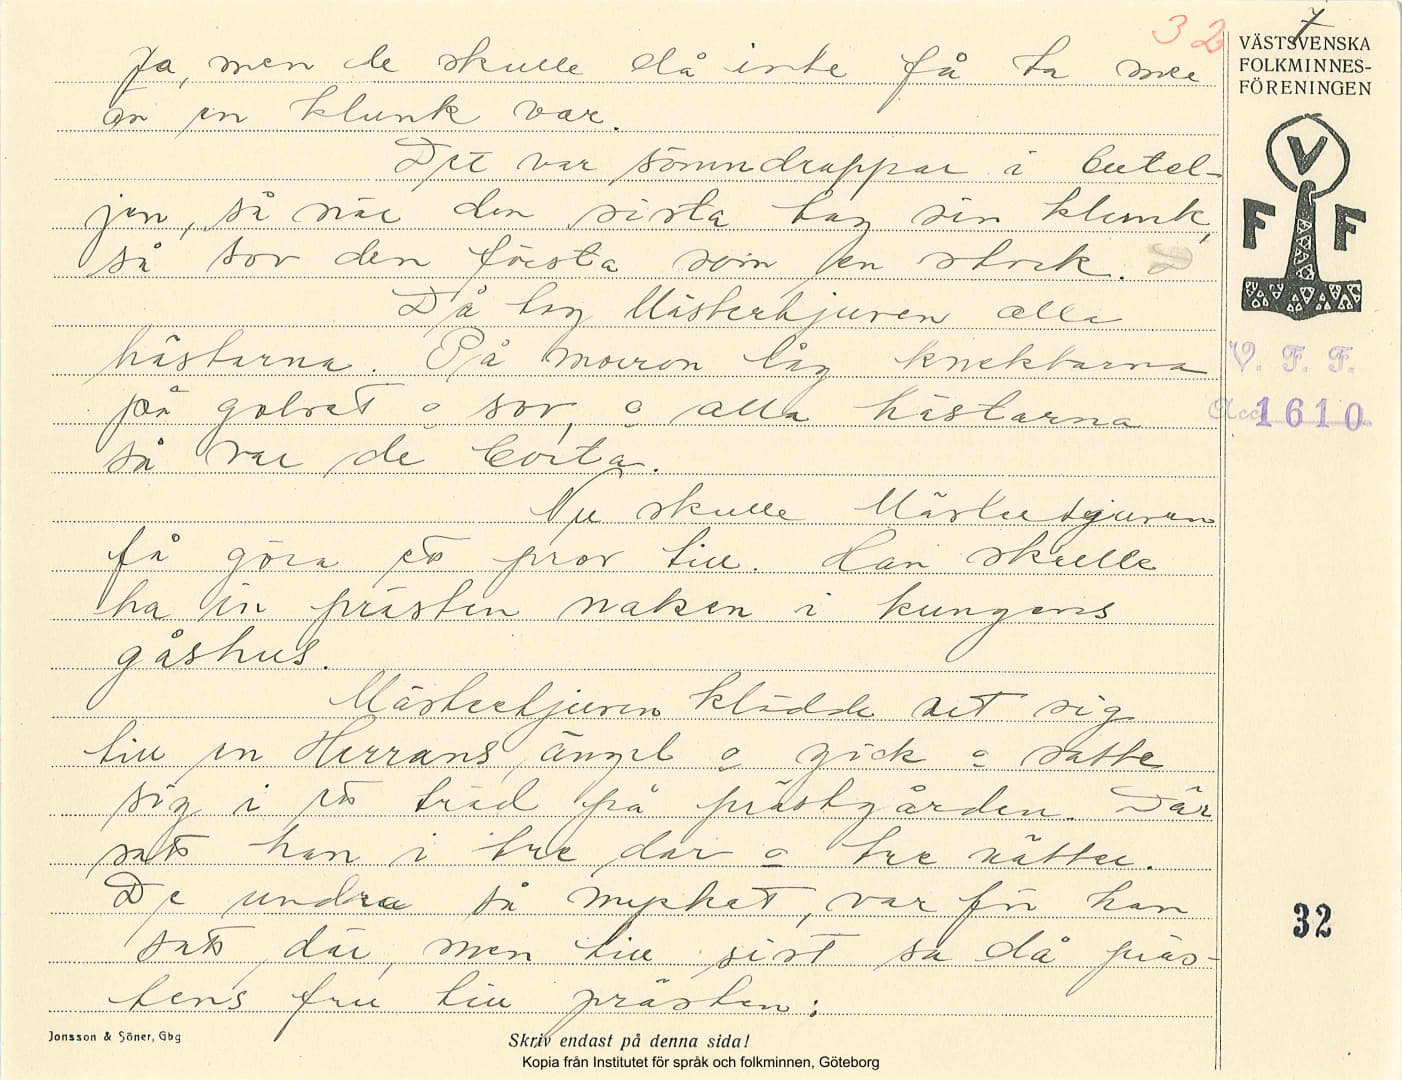 32
7
VÄSTSVENSKA
FOLKMINNES-
FÖRENINGEN
V
F F
V. F. F.
Acc. 1610
Ja, men de skulle då inte få ta mer
än en klunk var.
Det var sömndrappar i butel-
jen, så när den sista tag sin klunk,
så sov den första som en stock.
Då tog Mästertjuven alla
hästarna. På morron låg knektarna
på golvet o sov, o alla hästarna
så var de borta.
Nu skulle Mästertjuven
få göra ett prov till. Han skulle
ha in prästen naken i kungens
gåshus.
Mästertjuven klädde ut sig
till en Herrans ängel o gick o satte
sig i ett träd på prästgården. Där
satt han i tre dar o tre nätter.
De undra så mycket, var för han
satt där, men till sist sa då präs-
tens fru till prästen:
32
Jonsson & Söner, Gbg
Skriv endast på denna sida!
Kopia från Institutet för språk och folkminnen, Göteborg